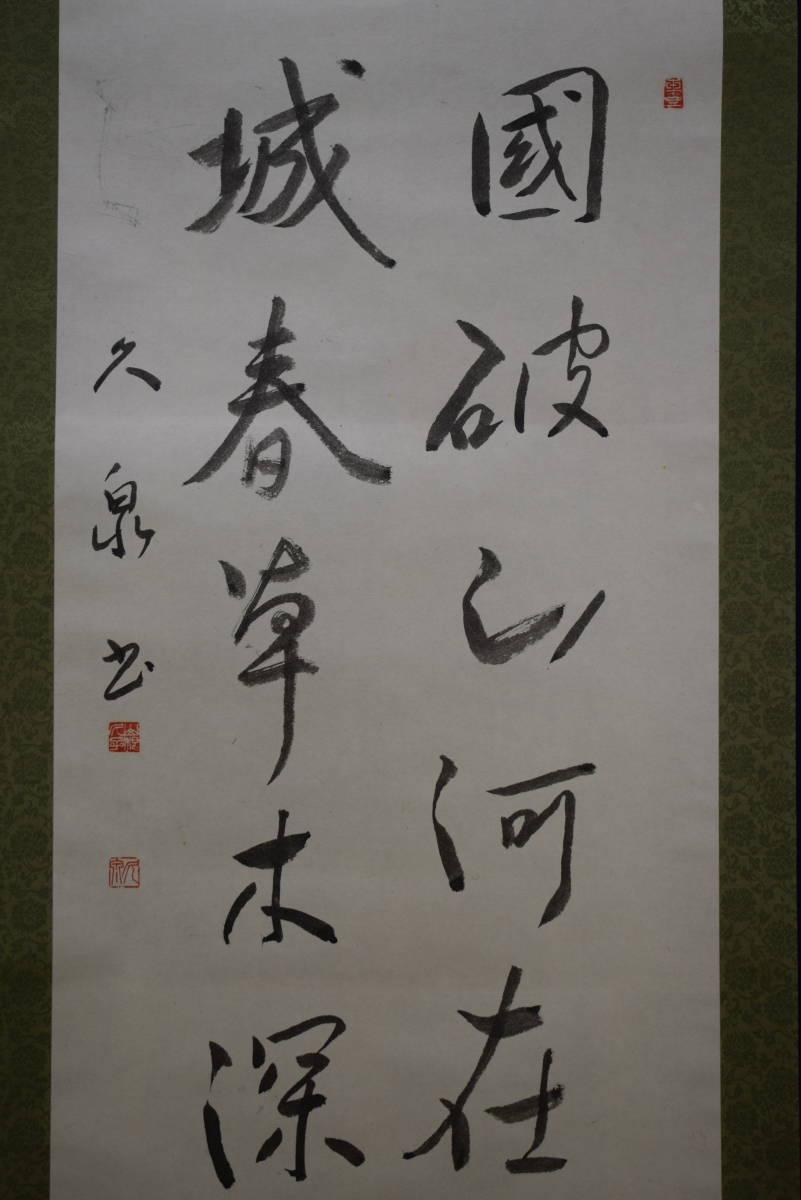 國破山河在
城春草木深
久泉书